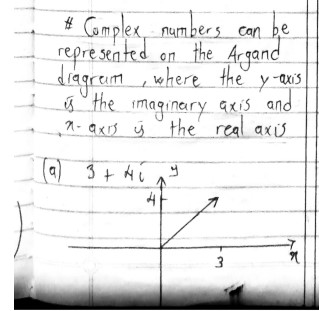 # Complex numbers can be
represented on the Argand
diagram, where the y-axis
is the imaginary axis and
x-axis is the real axis
(a) 3 + 4i
y
4
3
x